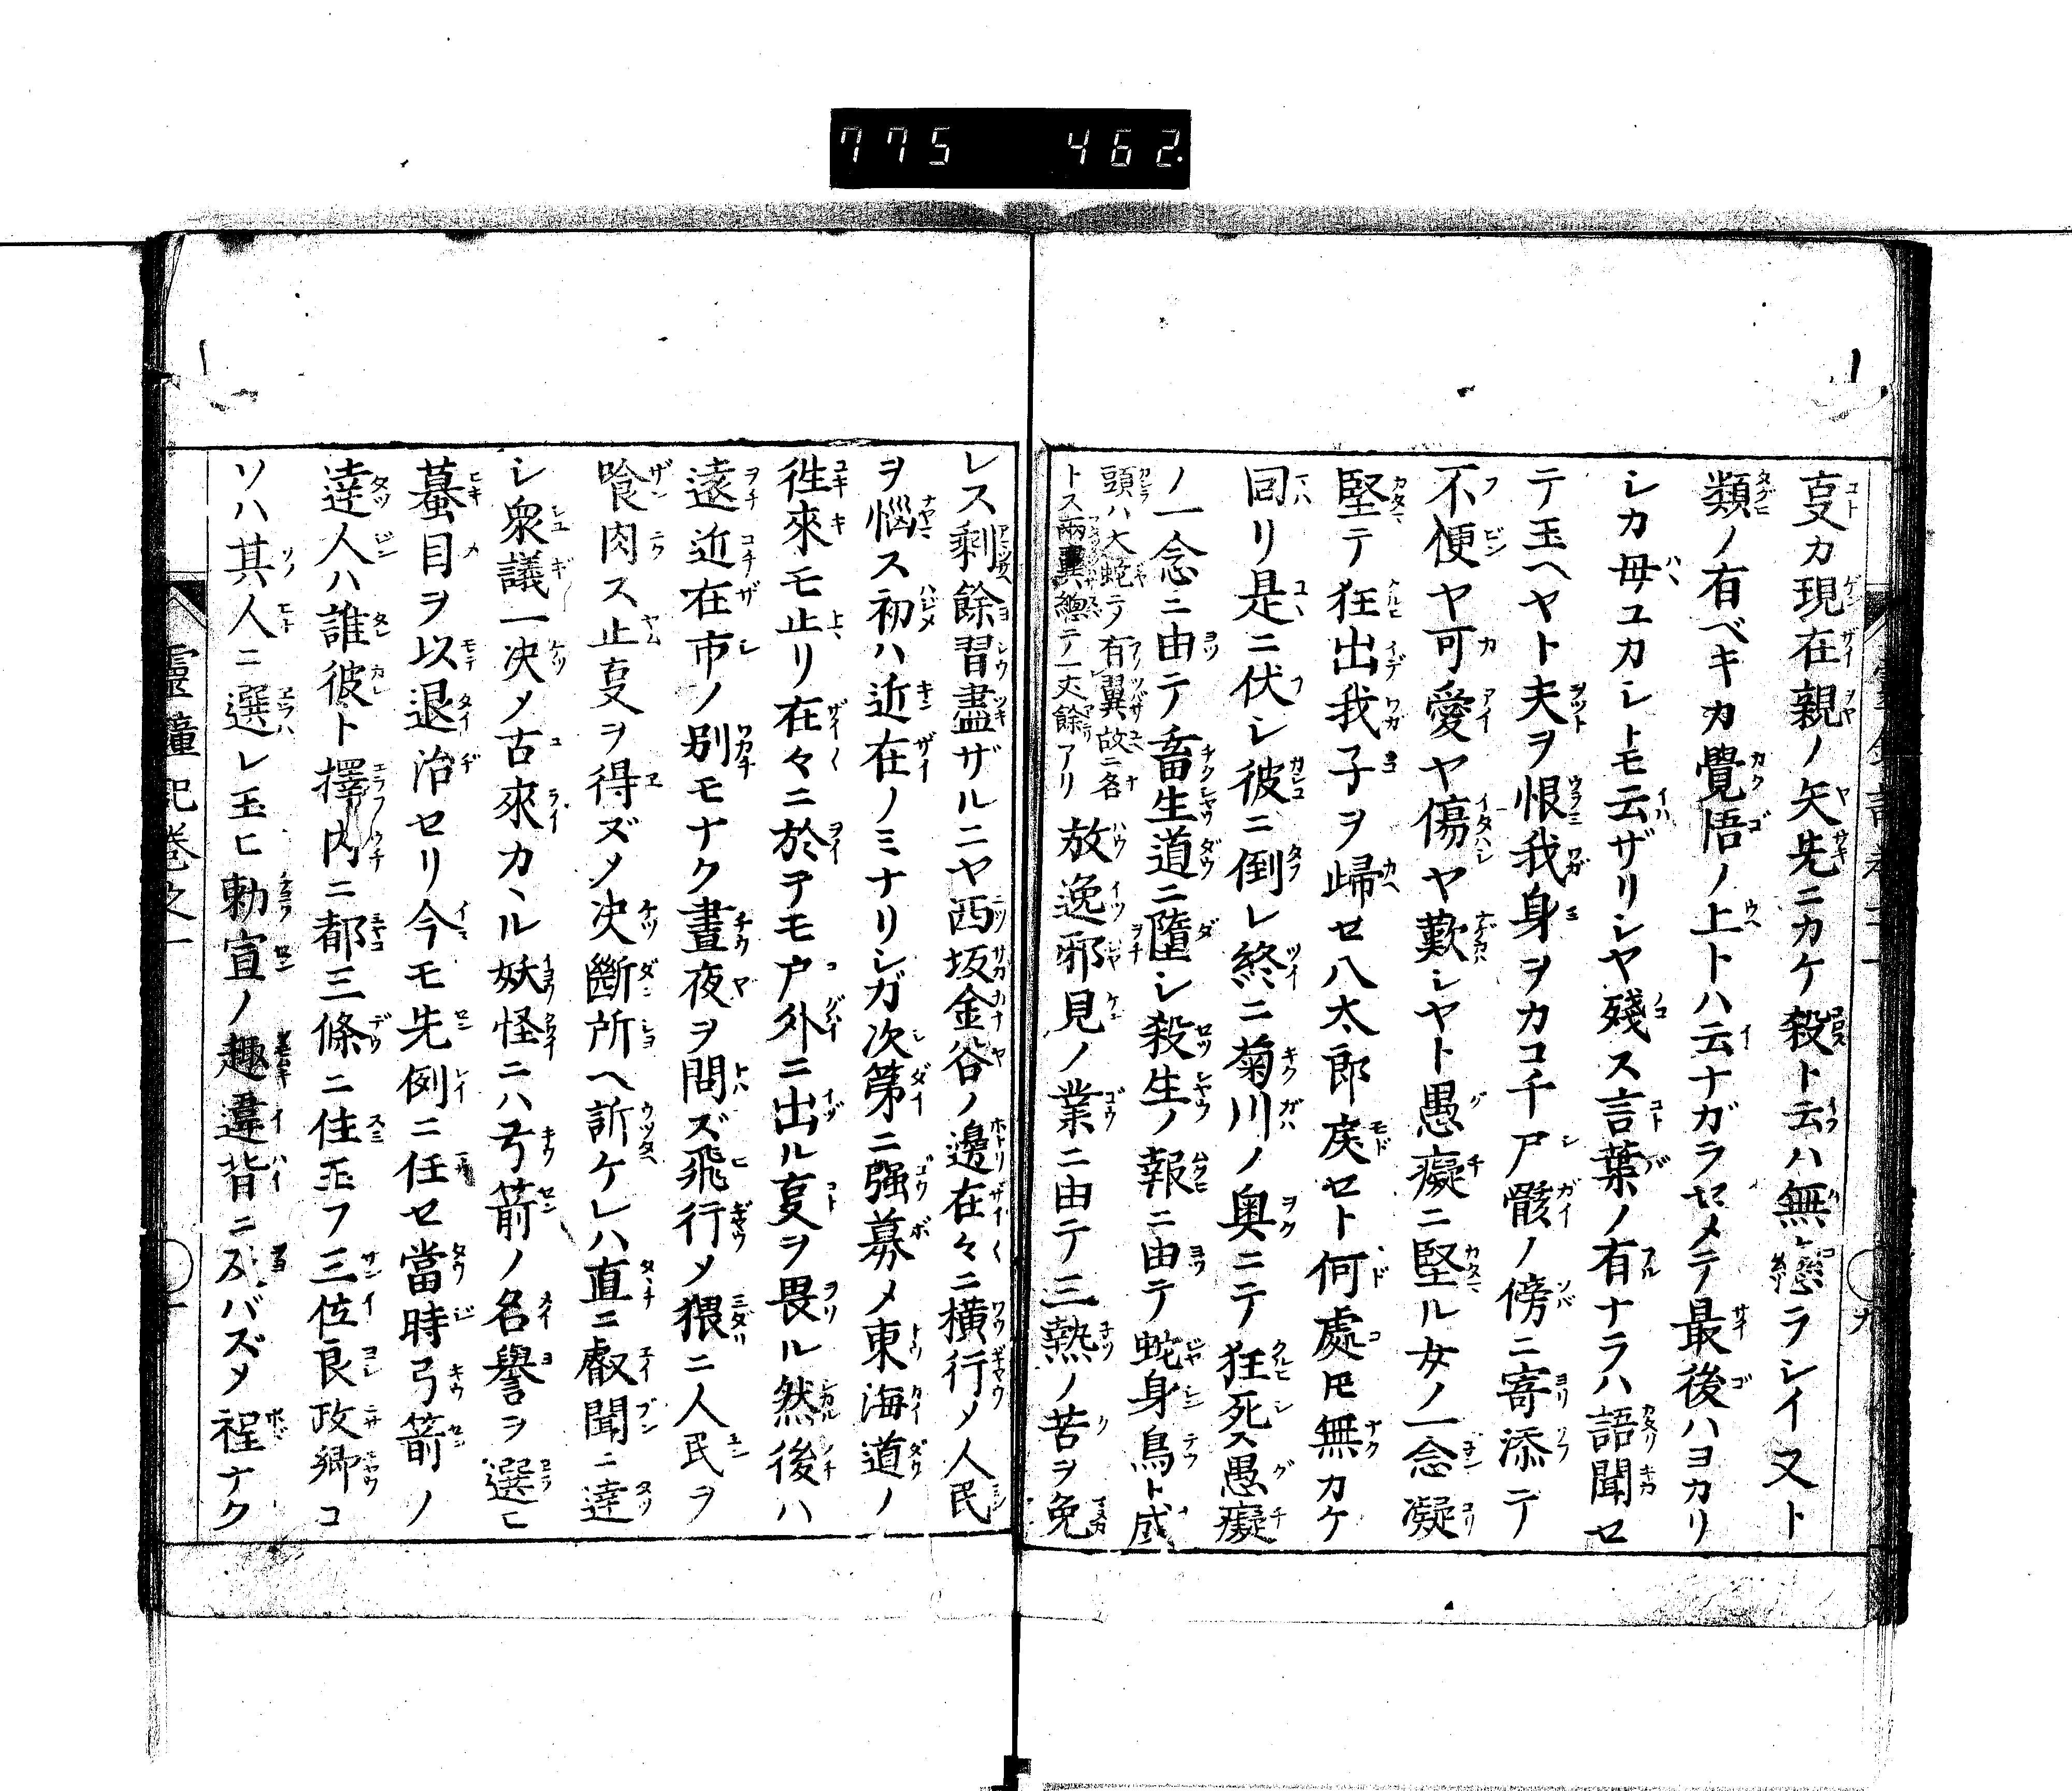 775 462.
叓カ現在親ノ矢先ニカケ殺ト云ハ無ラシイヌト
類ノ有ベキカ覺悟ノ上トハ云ナガラせメテ最後ハヨカリ
シカ母ユカシトモ云ザリシヤ殘ス言葉ノ有ナラハ語聞セ
テ玉ヘヤト夫ヲ恨我身ヲカコチ尸骸ノ傍ニ寄添テ
不便ヤ可愛ヤ傷ヤ歎シヤト愚癡ニ堅ル女ノ一念凝
堅テ狂出我子ヲ歸せ八太郎戻セト何處𪜈無カケ
回リ是ニ伏シ彼ニ倒レ終ニ菊川ノ奥ニテ狂死ス愚癡
ノ一念ニ由テ畜生道ニ墮シ殺生ノ報ニ由テ蛇身鳥ト成
頭ハ大蛇テ有翼故ニ各
トス兩翼總テ一丈餘アリ
放逸邪見ノ業ニ由テ三熱ノ苦ヲ免
レス剰餘習盡ザルニヤ西坂金谷ノ邊在々ニ横行メ人民
ヲ惱ス初ハ近在ノミナリシガ次第ニ强募メ東海道ノ
徃來モ止リ在々ニ於ヲモ户外ニ出ル叓ヲ畏ル然後ハ
遠近在市ノ別モナク晝夜ヲ問ズ飛行メ猥ニ人民ヲ
喰肉ス止叓ヲ得ズメ决斷所ヘ訴ケレハ直ニ叡聞ニ達
シ衆議一决メ古來カヽル妖怪ニハ弓箭ノ名譽ヲ選ヒ
蟇目ヲ以退治セリ今モ先例ニ任セ當時弓箭ノ
達人ハ誰彼ト擇内ニ都三條ニ住玉フ三位良政卿コ
ソハ其人ニ選レ玉ヒ勅宣ノ趣違背ニ及バズメ程ナク
靈鐘記卷之一
九